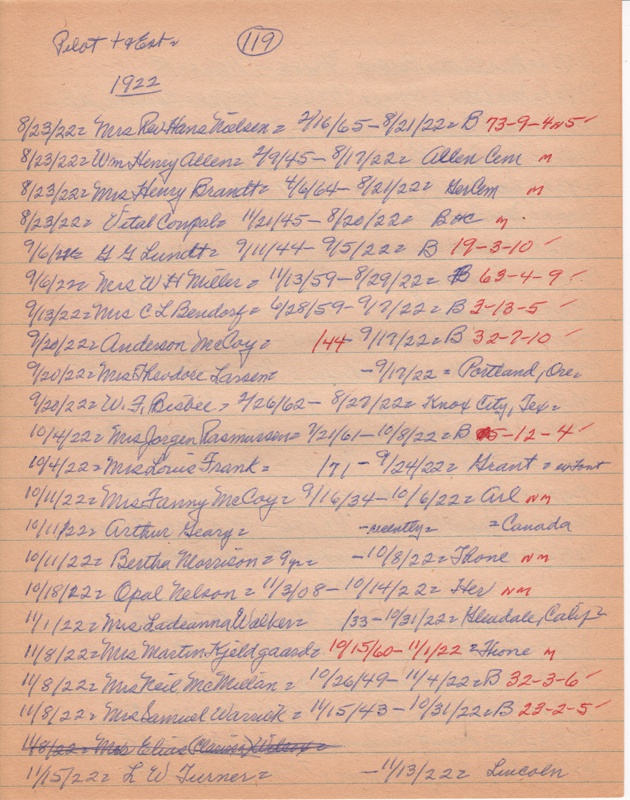 Pilot + & Ent= 119
1922
8/23/22= Mrs Rev Hans Nielsen= 2/16/65-8/21/22= B 73-9-4 N5 ✓
8/23/22= Wm Henry Allen= 2/9/45-8/17/22= Allen Cem M
8/23/22= Mrs Henry Brandt= 4/6/64-8/21/22= Ger Cem M
8/23/22= Vital Coupal= 11/21/45-8/20/22= BHC M
9/6/22= G G Lundt= 9/11/44-9/5/22= B 19-3-10 ✓
9/6/22= Mrs W H Miller= 11/13/59-8/29/22= B 63-4-9 ✓
9/13/22= Mrs C L Bendorf= 6/28/59-9/7/22= B 3-13-5 ✓
9/20/22= Anderson McCoy= /44 9/17/22= B 32-7-10 ✓
9/20/22= Mrs Theodore Larsen= -9/17/22= Portland, Ore=
9/20/22= W. F. Bisbee= 2/26/62-8/27/22= Knox City, Tex=
10/4/22= Mrs Jorgen Rasmussen= 7/21/61-10/8/22= B 5-12-4 ✓
10/4/22= Mrs Louis Frank= /71-9/24/22= Grant=
10/11/22= Mrs Fanny McCoy= 9/16/34-10/6/22= Arl NM
10/11/22= Arthur Geary= -recently= =Canada
10/11/22= Bertha Morrison= 9yr= -10/8/22= Fhone NM
10/18/22= Opal Nelson= 11/3/08-10/14/22= Her NM
11/1/22= Mrs Ladeanna Walker= /33-10/31/22= Glendale, Calif=
11/8/22= Mrs Martin Kjeldgaard= 10/15/60-11/1/22= Fhone M
11/8/22= Mrs Neil McMillan= 10/26/49-11/4/22= B 32-3-6 ✓
11/8/22= Mrs Samuel Warrick= 11/15/43-10/31/22= B 23-2-5 ✓
11/8/22= Mrs Elias (Clarissa) Wilcox=
11/15/22= L W Turner= -11/13/22= Lincoln